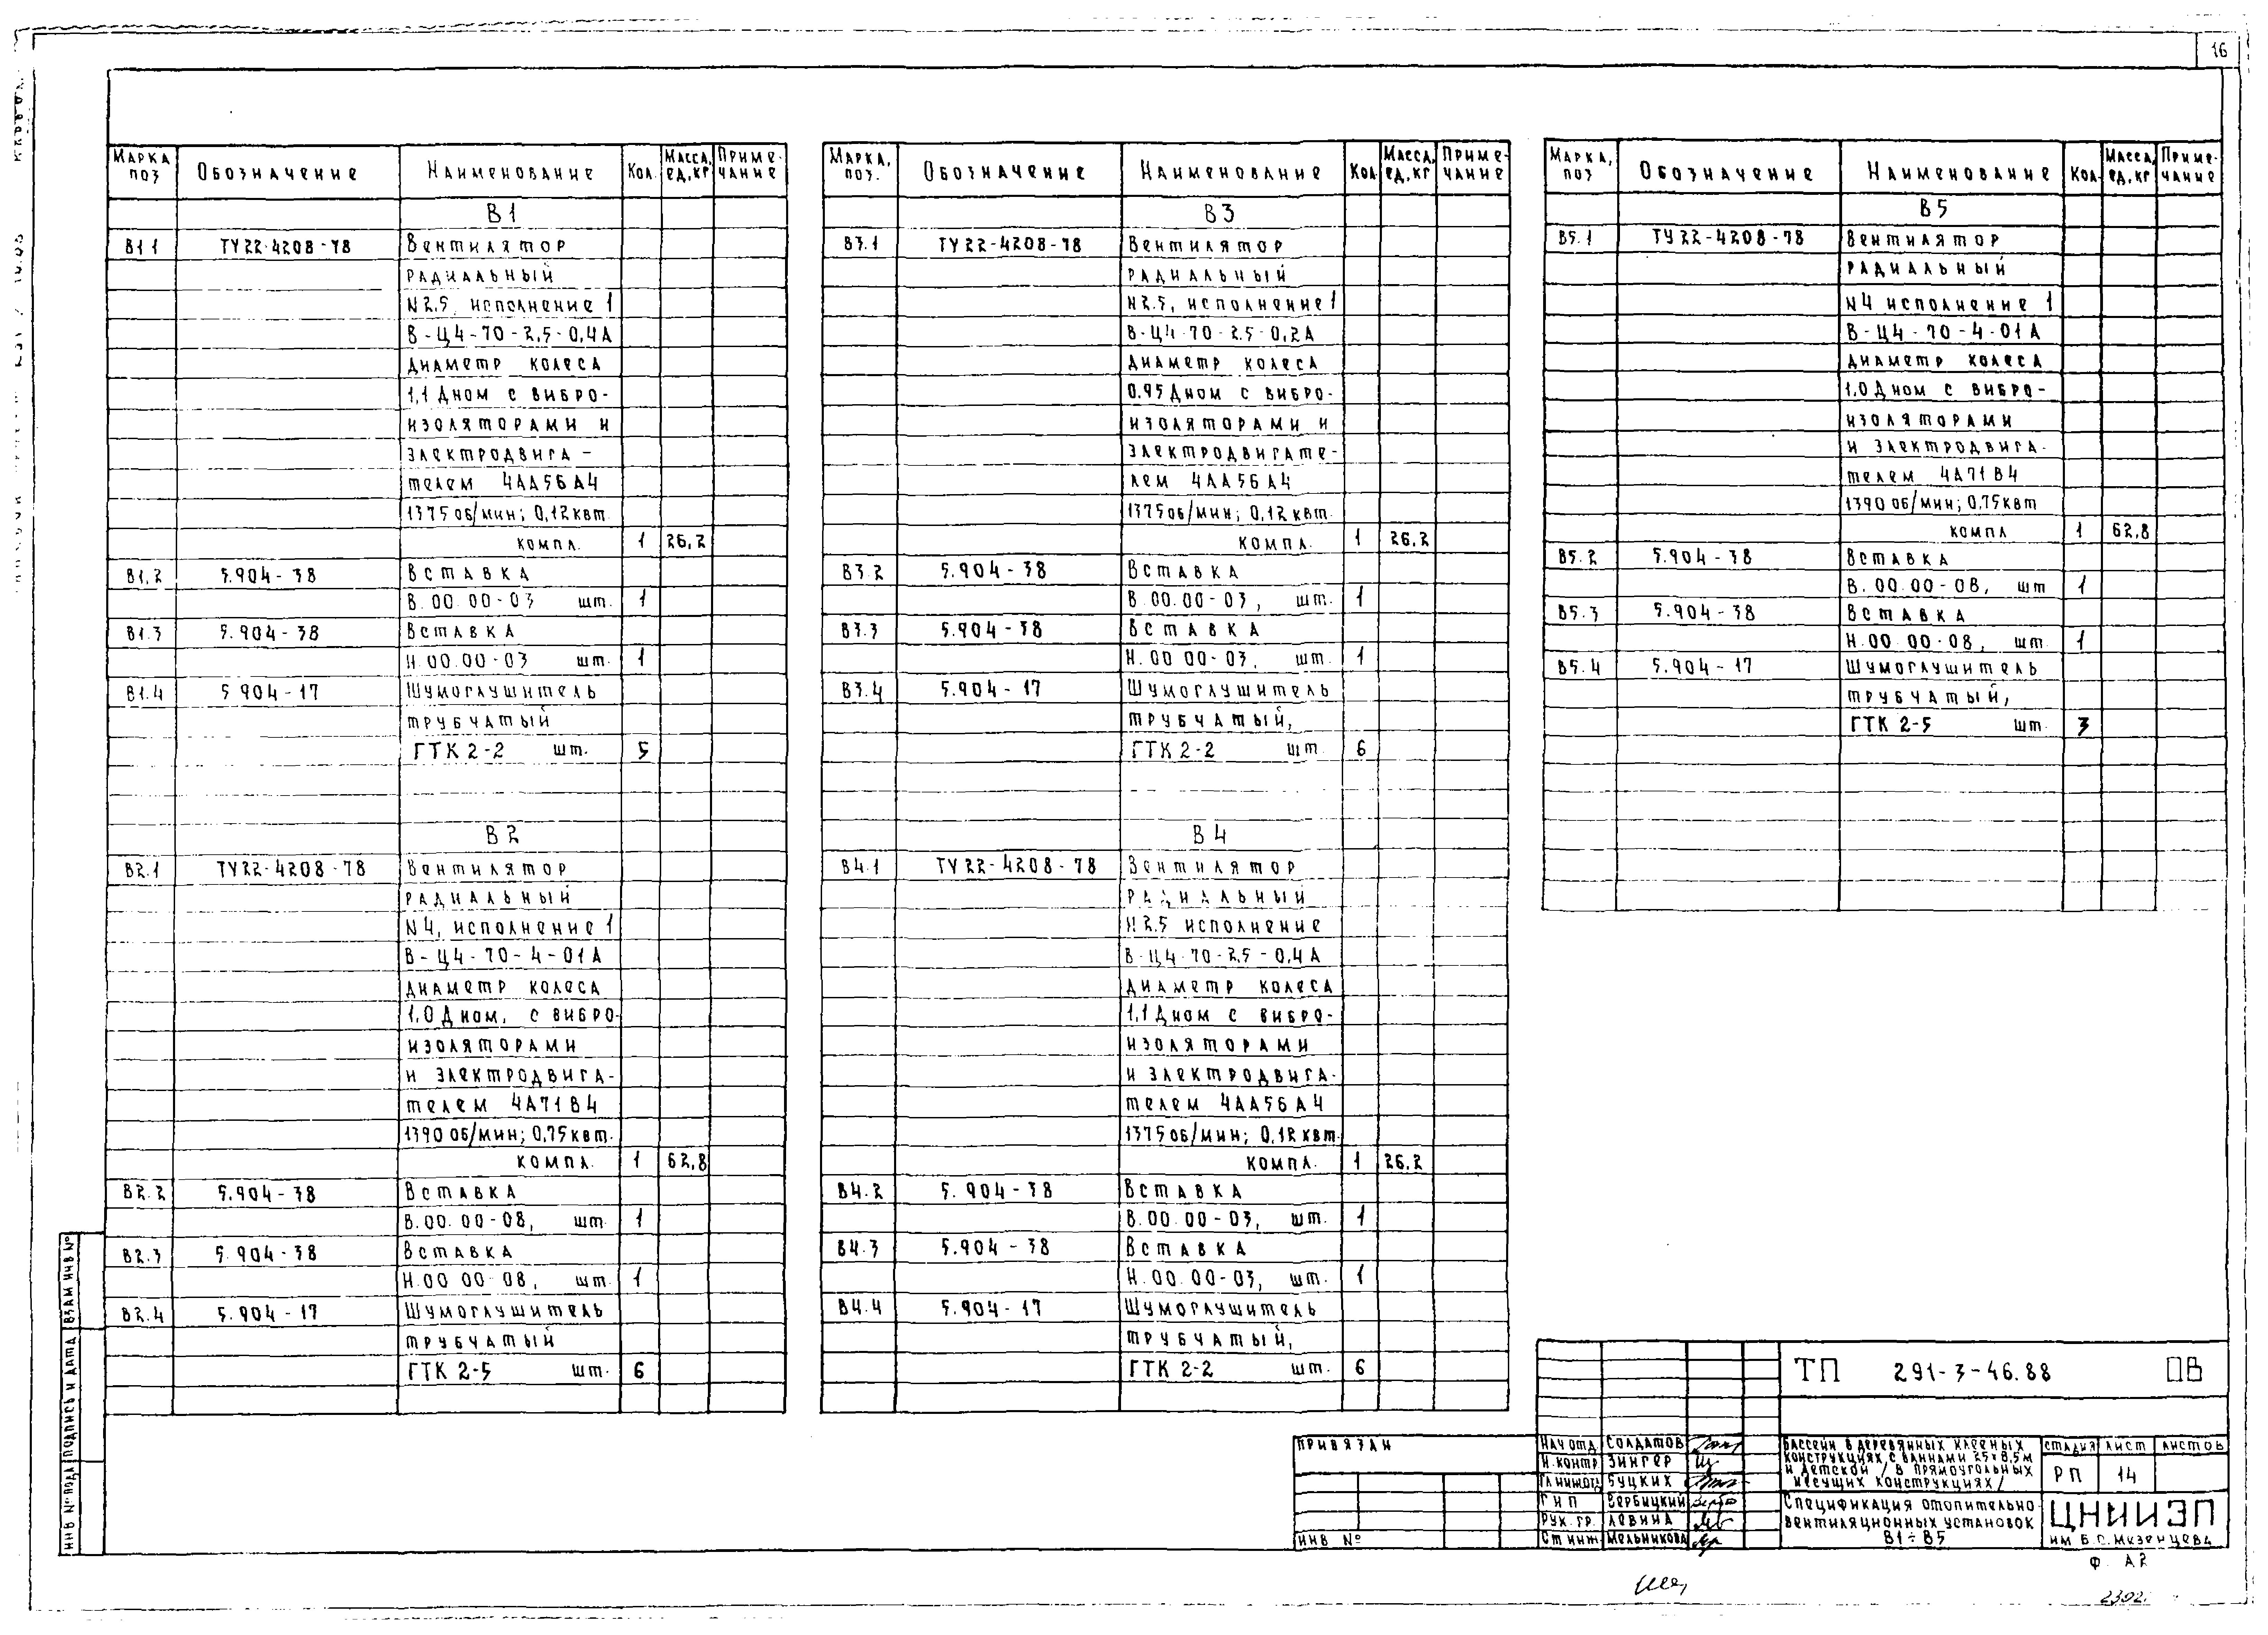 16
Марка поз Обозначение Наименование Кол. Масса, ед,кг Примечание
В1
В1.1 ТУ22-4208-78 Вентилятор
радиальный
N2,5, исполнение 1
В-Ц4-70-2,5-0,4А
диаметр колеса
1,1 Дном с вибро-
изоляторами и
электродвига-
телем 4АА56А4
1375об/мин; 0,12квт.
компл. 1 26,2
В1.2 5.904-38 Вставка
В.00.00-03 шт. 1
В1.3 5.904-38 Вставка
Н.00.00-03 шт. 1
В1.4 5.904-17 Шумоглушитель
трубчатый
ГТК 2-2 шт. 5
В2
В2.1 ТУ22-4208-78 Вентилятор
радиальный
N4, исполнение 1
В-Ц4-70-4-01А
диаметр колеса
1,0 Дном, с вибро-
изоляторами
и электродвига-
телем 4А71В4
1390об/мин; 0,75квт.
компл. 1 62,8
В2.2 5.904-38 Вставка
В.00.00-08, шт. 1
В2.3 5.904-38 Вставка
Н.00 00-08, шт. 1
В2.4 5.904-17 Шумоглушитель
трубчатый
ГТК 2-5 шт. 6
Марка, поз. Обозначение Наименование Кол Масса, ед,кг Примечание
В3
В3.1 ТУ22-4208-78 Вентилятор
радиальный
N2,5, исполнение 1
В-Ц4-70-2,5-0,2А
диаметр колеса
0.95 Дном с вибро-
изоляторами и
электродвигате-
лем 4АА56А4
1375об/мин; 0,12квт.
компл. 1 26,2
В3.2 5.904-38 Вставка
В.00.00-03, шт. 1
В3.3 5.904-38 Вставка
Н.00 00-03, шт. 1
В3.4 5.904-17 Шумоглушитель
трубчатый,
ГТК 2-2 шт. 6
В4
В4.1 ТУ22-4208-78 Вентилятор
радиальный
N2,5 исполнение
В-Ц4-70-2,5-0,4А
диаметр колеса
1,1 Дном с вибро-
изоляторами
и электродвига-
телем 4АА56А4
1375об/мин; 0,12квт.
компл. 1 26,2
В4.2 5.904-38 Вставка
В.00.00-03, шт. 1
В4.3 5.904-38 Вставка
Н.00.00-03, шт. 1
В4.4 5.904-17 Шумоглушитель
трубчатый,
ГТК 2-2 шт. 6
Марка, поз Обозначение Наименование Кол Масса, ед,кг Примечание
В5
В5.1 ТУ22-4208-78 Вентилятор
радиальный
N4 исполнение 1
В-Ц4-70-4-01А
диаметр колеса
1,0 Дном с вибро-
изоляторами
и электродвига-
телем 4А71В4
1390об/мин; 0,75квт
компл 1 62,8
В5.2 5.904-38 Вставка
В.00.00-08, шт 1
В5.3 5.904-38 Вставка
Н.00.00-08, шт. 1
В5.4 5.904-17 Шумоглушитель
трубчатый,
ГТК 2-5 шт. 3
Инв № подл Подпись и дата Взам инв №
Привязан
Инв №
ТП 291-3-46.88 ОВ
Нач отд. Солдатов
Н.контр Зингер
Гл инж отд Буцких
ГИП Вербицкий
Рук. гр. Левина
Ст инж Мельникова
Бассейн в деревянных клееных
конструкциях с ваннами 25×8,5м
и детской /в прямоугольных
несущих конструкциях/
Стадия Лист Листов
РП 14
Спецификация отопительно-
вентиляционных установок
В1÷В5
ЦНИИЭП
им Б.С.Мезенцева
Ф. А2
2302